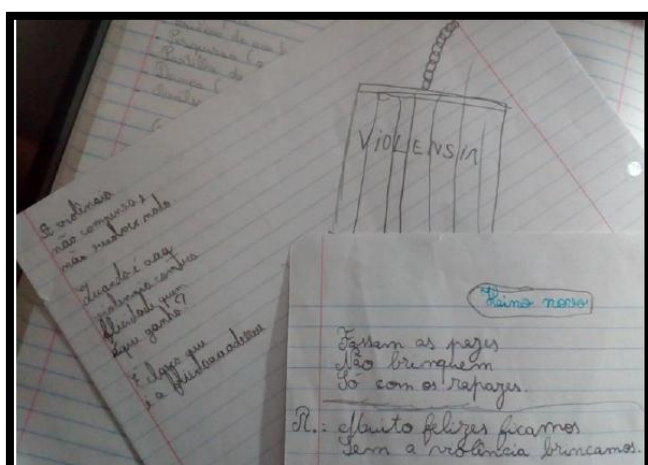 Pesquisas (
VIOLENSIA
A violência
não compensa e
não resolve nada
Quando é a
violença contra
felicidade quem
é que ganha?
É claro que
é a felicidade
Haino nosso
Fassam as pazes
Não brinquem
Só com os rapazes.
R.: Muito felizes ficamos
Sem a violência brincamos.